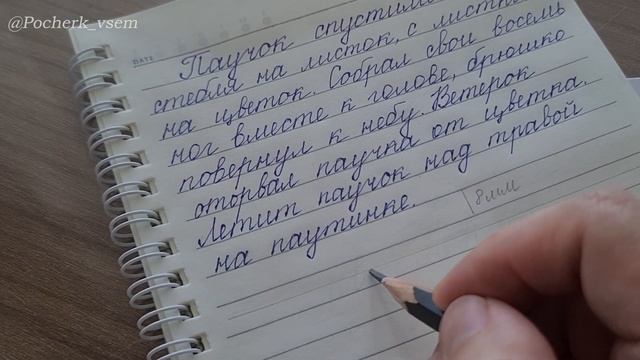 @Pocherk_vsem
DATE
Паучок спустился
стебля на листок, с листка
на цветок. Собрал свои восемь
ног вместе к голове, брюшко
повернул к небу. Ветерок
оторвал паучка от цветка.
Летит паучок над травой
на паутинке.
8 мм